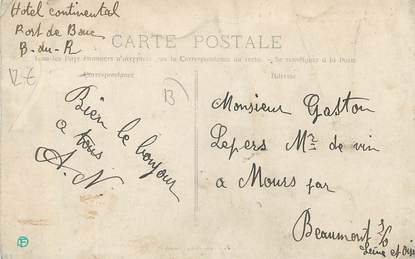 Hotel continental
Port de Bouc
B-du-R
12 €
CARTE POSTALE
Tous les Pays étrangers n'acceptent pas la Correspondance au recto. Se renseigner à la Poste
Correspondance
Adresse
13
Bien le bonjour
a tous
A. N
Monsieur Gaston
Lepers Md de vin
a Mours par
Beaumont s/o
Seine et Oise